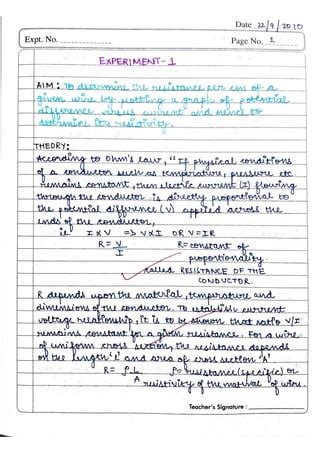 Date 22/9/2020
Expt. No.
Page No. 1
EXPERIMENT-1
AIM: To determine the resistance per cm of a
given wire by plotting a graph of potential
difference versus current and hence to
determine its resistivity.
THEORY:
According to Ohm's Law, "If physical conditions
of a conductor such as temperature, pressure etc.
remains constant, then electric current (I) flowing
through the conductor is directly proportional to
the potential difference (V) applied across the
ends of the conductor,
ie I ∝ V => V ∝ I OR V=IR
R = V/I R = constant of
proportionality.
called RESISTANCE OF THE
CONDUCTOR.
R depends upon the material, temperature and
dimensions of the conductor. To establish current
voltage relationship, it is to be shown that ratio V/I
remains constant for a given resistance. For a wire
of uniform cross section, the resistance depends
on the length 'l' and area of cross section 'A'
R = ρL/A ρ = resistance (specific) or
resistivity of the material of wire.
Teacher's Signature :